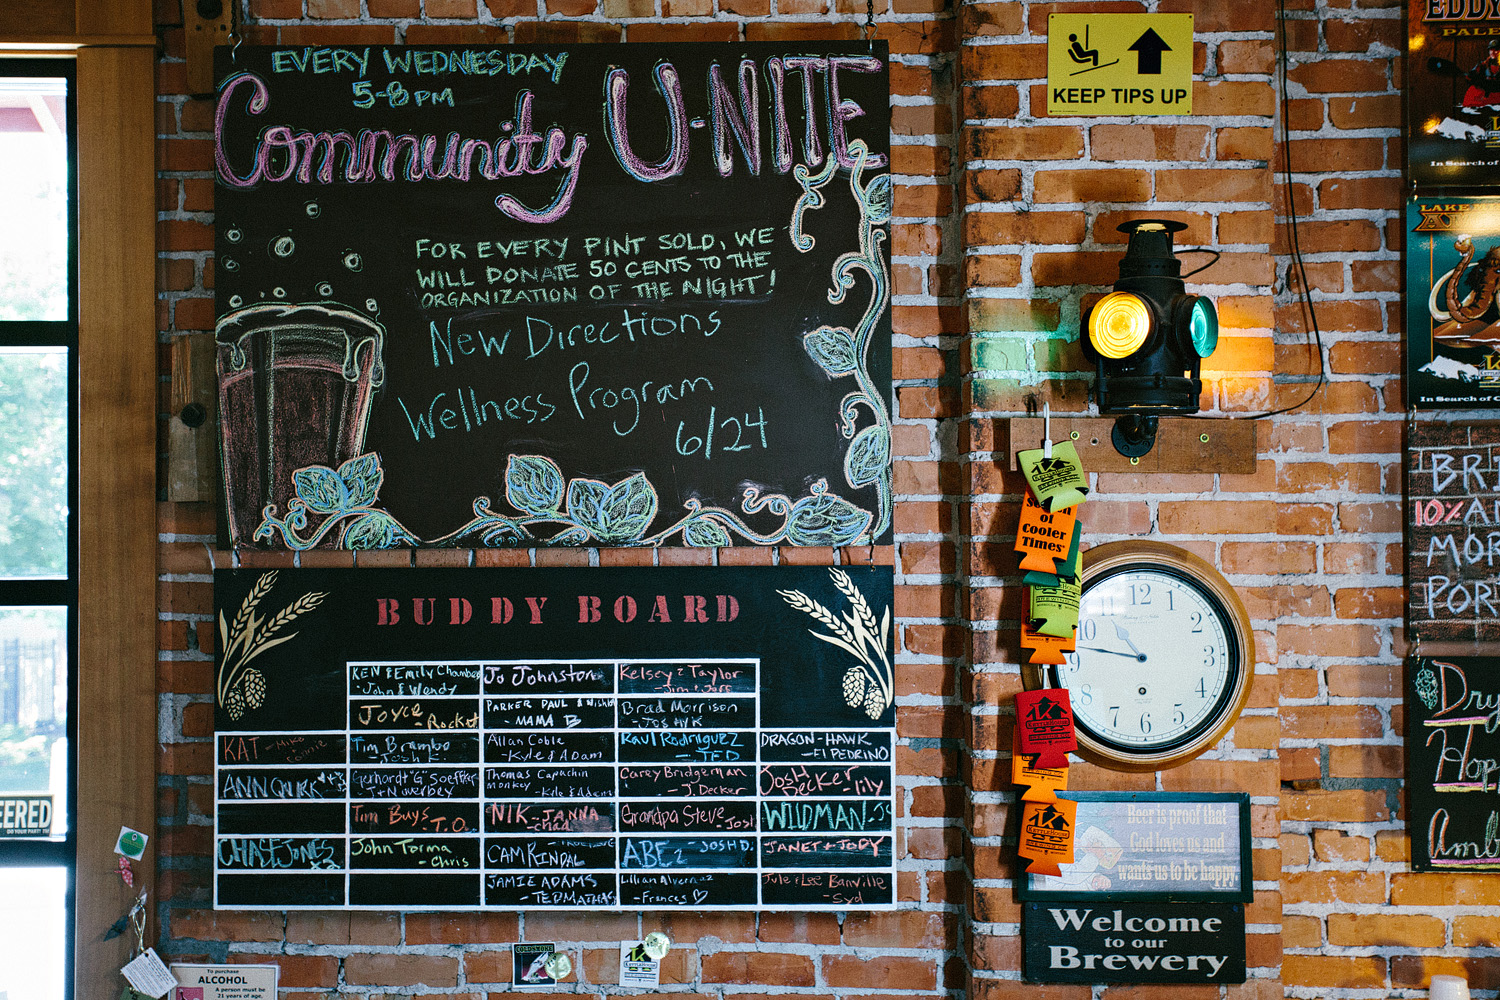 EVERY WEDNESDAY
5-8 PM
Community U-NITE
FOR EVERY PINT SOLD, WE
WILL DONATE 50 CENTS TO THE
ORGANIZATION OF THE NIGHT!
New Directions
Wellness Program
6/24
BUDDY BOARD
KEN & Emily Chambers
- John & Wendy
Jo Johnston
Kelsey & Taylor
- Jim & Jeff
Joyce
- Rocket
PARKER PAUL &
- MAMA B
Brad Morrison
- Jos HYK
KAT - Mike
Connie
Tim Brambo
- Josh K.
Allan Coble
- Kyle & Adam
Raul Rodriguez
- TED
DRAGON-HAWK
- El PEDRINO
ANN QUIRK
Gerhardt "G"
Thomas Capuchin
Monkey - Kyle & Adam
Carey Bridgeman
- J. Decker
JOSH
DECKER - lily
Tim Buys - T.O.
NIK - JANNA
- chad
Grandpa Steve - Josh
WILDMAN - JS
CHASE JONES
John Torma
- Chris
CAM RINDAL
ABE 2 - JOSH D.
JANET & JODY
JAMIE ADAMS
- TED MATHAS
Lillian Alvernaz
- Frances ♡
Jule & Lee Banville
- Syd
KEEP TIPS UP
of
Cooler
Times
KETTLEHOUSE
12
1
2
3
4
5
6
7
8
9
10
11
Beer is proof that
God loves us and
wants us to be happy.
Welcome
to our
Brewery
EDDY
PALE
In Search of
LAKE
In Search of
BRI
10%
MOR
POR
Dry
Hop
Amb
EERED
To purchase
ALCOHOL
A person must be
21 years of age.
COLDSMOKE